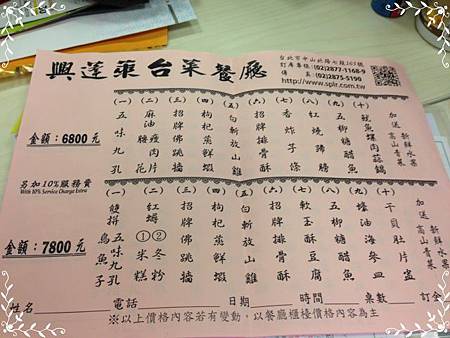 興蓬萊台菜餐廳
台北市中山北路七段165號
訂席專線:(02)2877-1168-9
傳真:(02)2875-5190
http://www.splr.com.tw
金額:6800元
(一)五味九孔
(二)麻油腰花 燒肉片
(三)招牌佛跳牆
(四)枸杞蒸鮮蝦
(五)白斬放山雞
(六)招牌排骨酥
(七)香炸子條
(八)紅燒蹄膀
(九)五柳糖醋魚
(十)魷魚螺肉蒜鍋
加送 新鮮水果 高山青菜
另加10%服務費
With 10% Service Charge Extra
金額:7800元
(一)雙拼 五味九孔 烏魚子
(二)紅蟳 ①米糕 ②冬粉
(三)招牌佛跳牆
(四)枸杞蒸鮮蝦
(五)白斬放山雞
(六)招牌排骨酥
(七)軟玉豆腐
(八)五柳糖醋魚
(九)蠔油海參
(十)干貝肚片
加送 新鮮水果 高山青菜
姓名 電話 日期 時間 桌數 訂金
※以上價格內容若有變動,以餐廳櫃檯價格內容為主